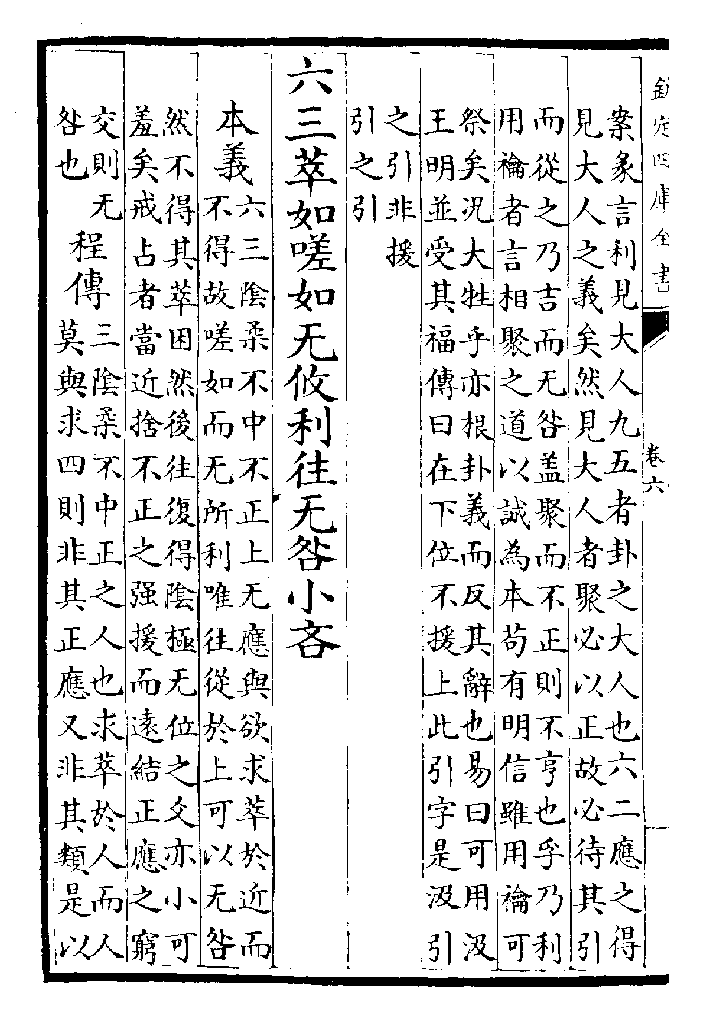 欽定四庫全書
卷六
案彖言利見大人九五者卦之大人也六二應之得
見大人之義矣然見大人者聚必以正故必待其引
而從之乃吉而无咎盖聚而不正則不亨也孚乃利
用禴者言相聚之道以誠為本苟有明信雖用禴可
祭矣况大牲乎亦根卦義而反其辭也易曰可用汲
王明並受其福傳曰在下位不援上此引字是汲引
之引非援
引之引
六三萃如嗟如无攸利往无咎小吝
本義
六三陰柔不中不正上无應與欲求萃於近而
不得故嗟如而无所利唯往從於上可以无咎
然不得其萃困然後往復得陰極无位之爻亦小可
羞矣戒占者當近捨不正之强援而遠結正應之窮
交則无
咎也
程傳
三陰柔不中正之人也求萃於人而人
莫與求四則非其正應又非其類是以